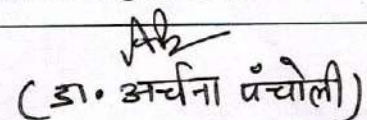 (डा. अर्चना पंचोली)